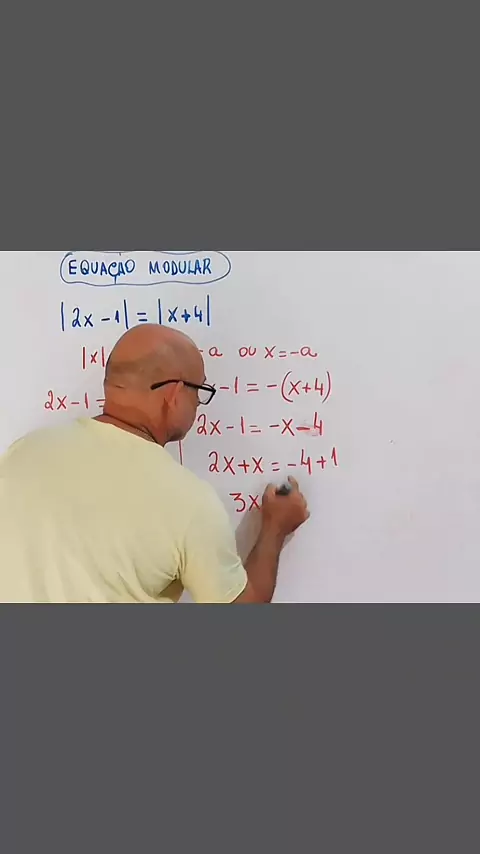 EQUAÇÃO MODULAR
|2x-1|=|x+4|
|x| -a ou x=-a
2x-1= x-1=-(x+4)
2x-1=-x-4
2x+x=-4+1
3x